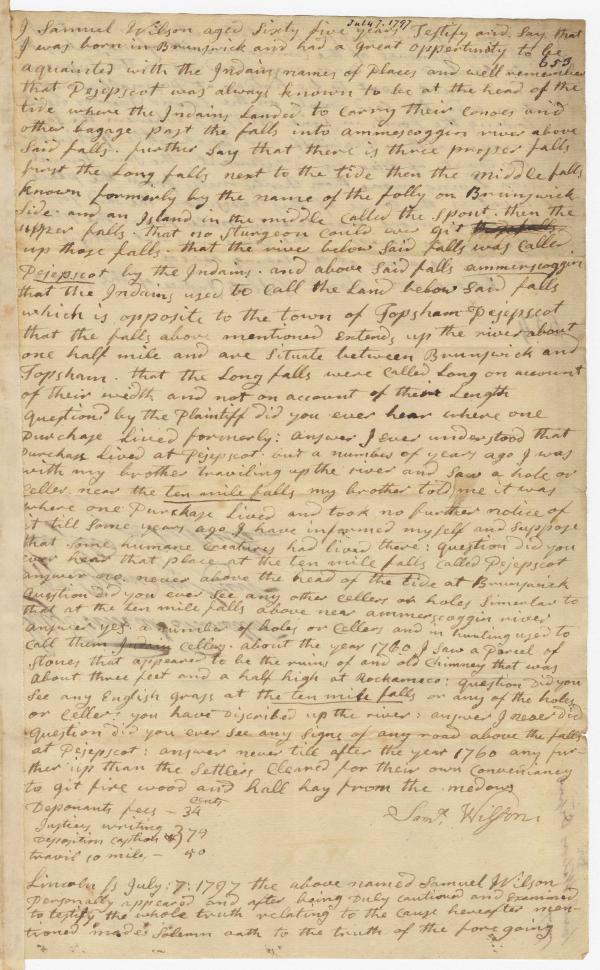 July 7. 1797
I Samuel Wilson aged Sixty five years Testify and Say that
I was born in Brunswick and had a Great opportunity to be
653
aquainted with the Indians names of Places and well remember
that Pejepscot was always known to be at the head of the
tide where the Indians Landed to Carry their Canoes and
other bagage past the falls into ammoscoggin river above
Said falls. further Say that there is three proper falls
first the Long falls next to the tide then the middle falls
known formerly by the name of the folly on Brunswick
Side. and an Island in the middle Called the Spout. then the
upper falls. that no Sturgeon Could ever git
up those falls. that the river below Said falls was Called
Pejepscot by the Indians. and above Said falls ammerscoggin
that the Indians used to Call the Land below Said falls
which is opposite to the town of Topsham Pejepscot
that the falls above mentioned Extends up the river about
one half mile and are Situate between Brunswick and
Topsham. that the Long falls were Called Long on account
of their width and not on account of their Length
Question by the Plaintiff did you ever hear where one
Purchase Lived formerly: answer I Ever understood that
Purchase Lived at Pejepscot but a number of years ago I was
with my brother traviling up the river and Saw a hole or
Celler near the ten mile falls my brother told me it was
where one Purchase Lived and took no further notice of
it till Some years ago I have informed myself and Suppose
that Some humane Creatures had lived there: Question did you
ever hear that place at the ten mile falls Called Pejepscot
answer no. never above the head of the tide at Brunswick
Question did you ever See any other Cellers or holes Simerlar to
that at the ten mile falls above near ammerscoggin river
answer yes. a number of holes or Cellers and in hunting used to
Call them Indian Cellers. about the year 1760 I Saw a Parcel of
Stones that appeared to be the ruins of and old Chimney that was
about three feet and a half high at Rockameco: Question Did you
See any English Grass at the ten mile falls or any of the holes
or Celler; you have Discribed up the river: answer I never did
Question did you ever See any Signs of any road above the falls
at Pejepscot: answer never till after the year 1760 any fur-
ther up than the Settlers Cleared for their own Conveniancy
to git fire wood and hall hay from the medows
Saml. Wilson
Cents
Deponants fees - 34
Justices writing
Deposition Caption &) 79
travil 10 mile - 40
Lincoln ss July: 7: 1797 the above named Samuel Wilson
Personally appeared and after being Duly Cautioned and Examined
to testify the whole truth relating to the Cause hereafter men-
tioned made Solemn oath to the truth of the foregoing